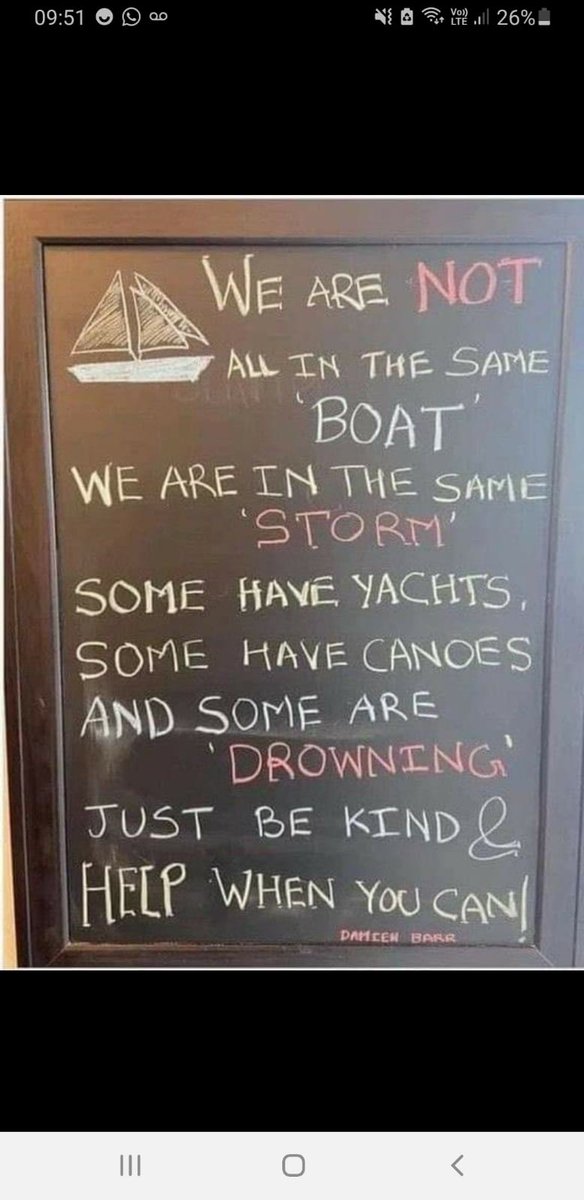 09:51
Vo)) LTE 26%
WE ARE NOT
ALL IN THE SAME
'BOAT'
WE ARE IN THE SAME
'STORM'
SOME HAVE YACHTS,
SOME HAVE CANOES
AND SOME ARE
'DROWNING'
JUST BE KIND &
HELP WHEN YOU CAN!
DAMIEN BARR